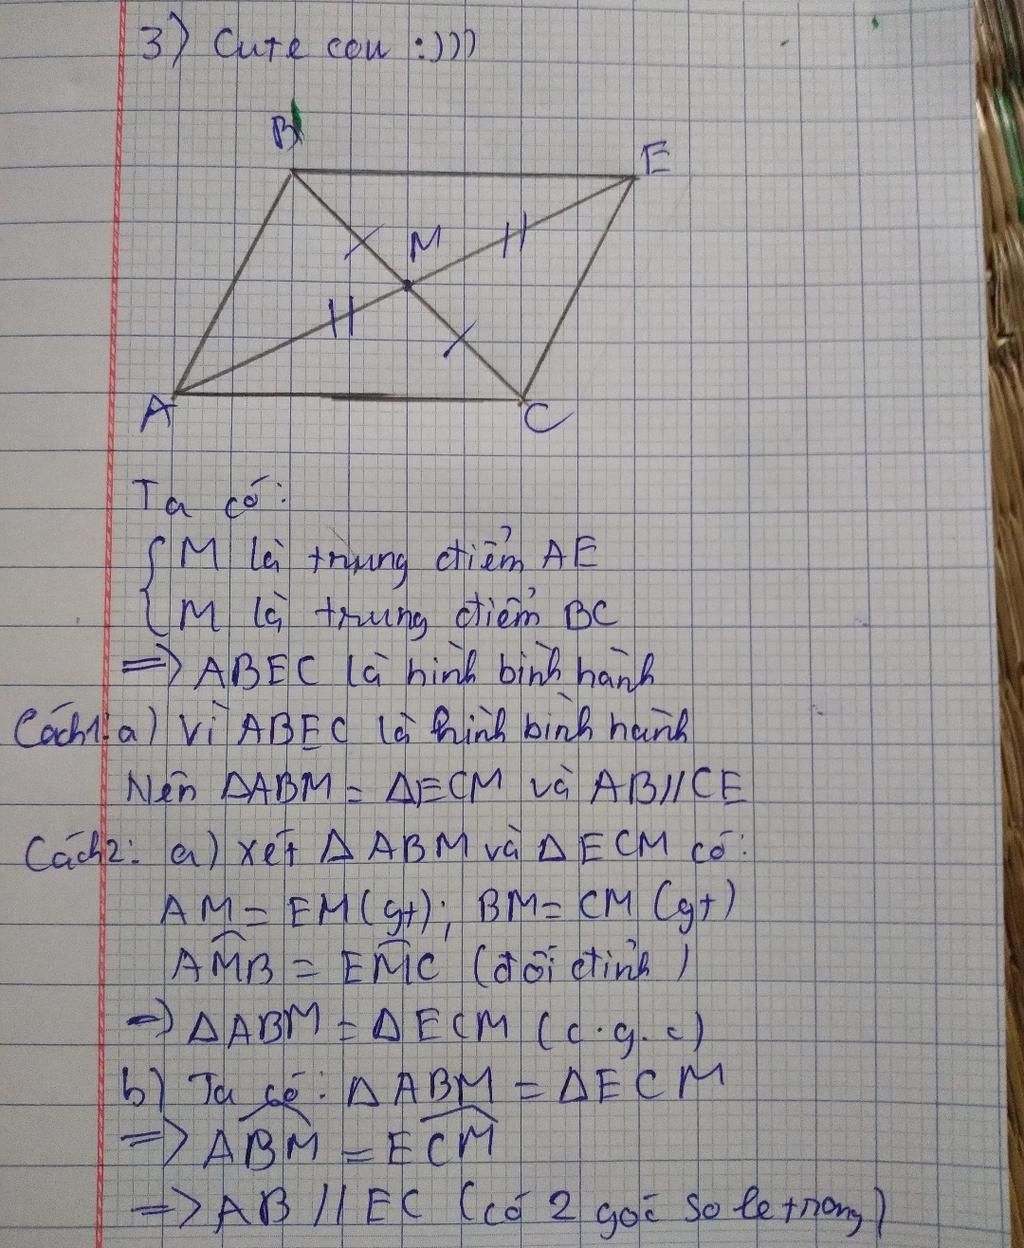 3) Cute cou :)))
B
E
M
A
C
Ta có:
{ M là trung điểm AE
{ M là trung điểm BC
=> ABEC là hình bình hành
Cách 1: a) Vì ABEC là hình bình hành
Nên ΔABM = ΔECM và AB//CE
Cách 2: a) Xét Δ ABM và Δ ECM có:
AM = EM (gt); BM = CM (gt)
AM̂B = EM̂C (đối đỉnh)
=> ΔABM = ΔECM (c.g.c)
b) Ta có: ΔABM = ΔECM
=> AB̂M = EĈM
=> AB // EC (có 2 góc so le trong)